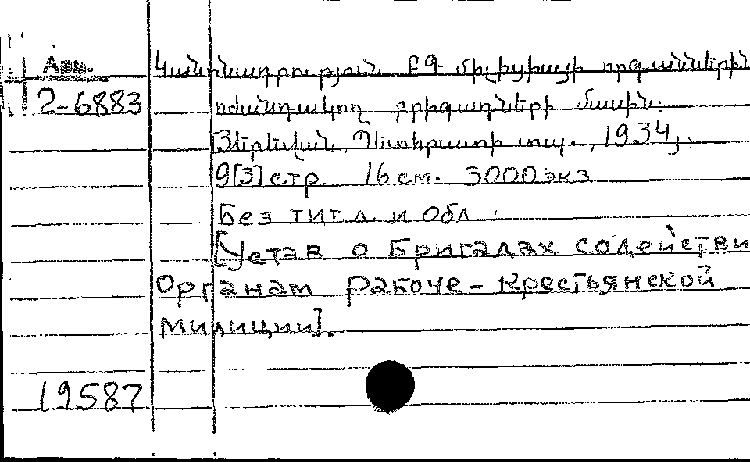 Арм.
2-6883
Կանոնադրություն ԲԳ միլիցիայի որգանների
օժանդակող բրիգադների մասին.
Յերեվան, Պետհրատի տպ., 1934,
9[3] стр 16 см. 3000 экз
Без тит. л. и обл.
[Устав о бригадах содействи
органам рабоче-крестьянской
милиции].
19587